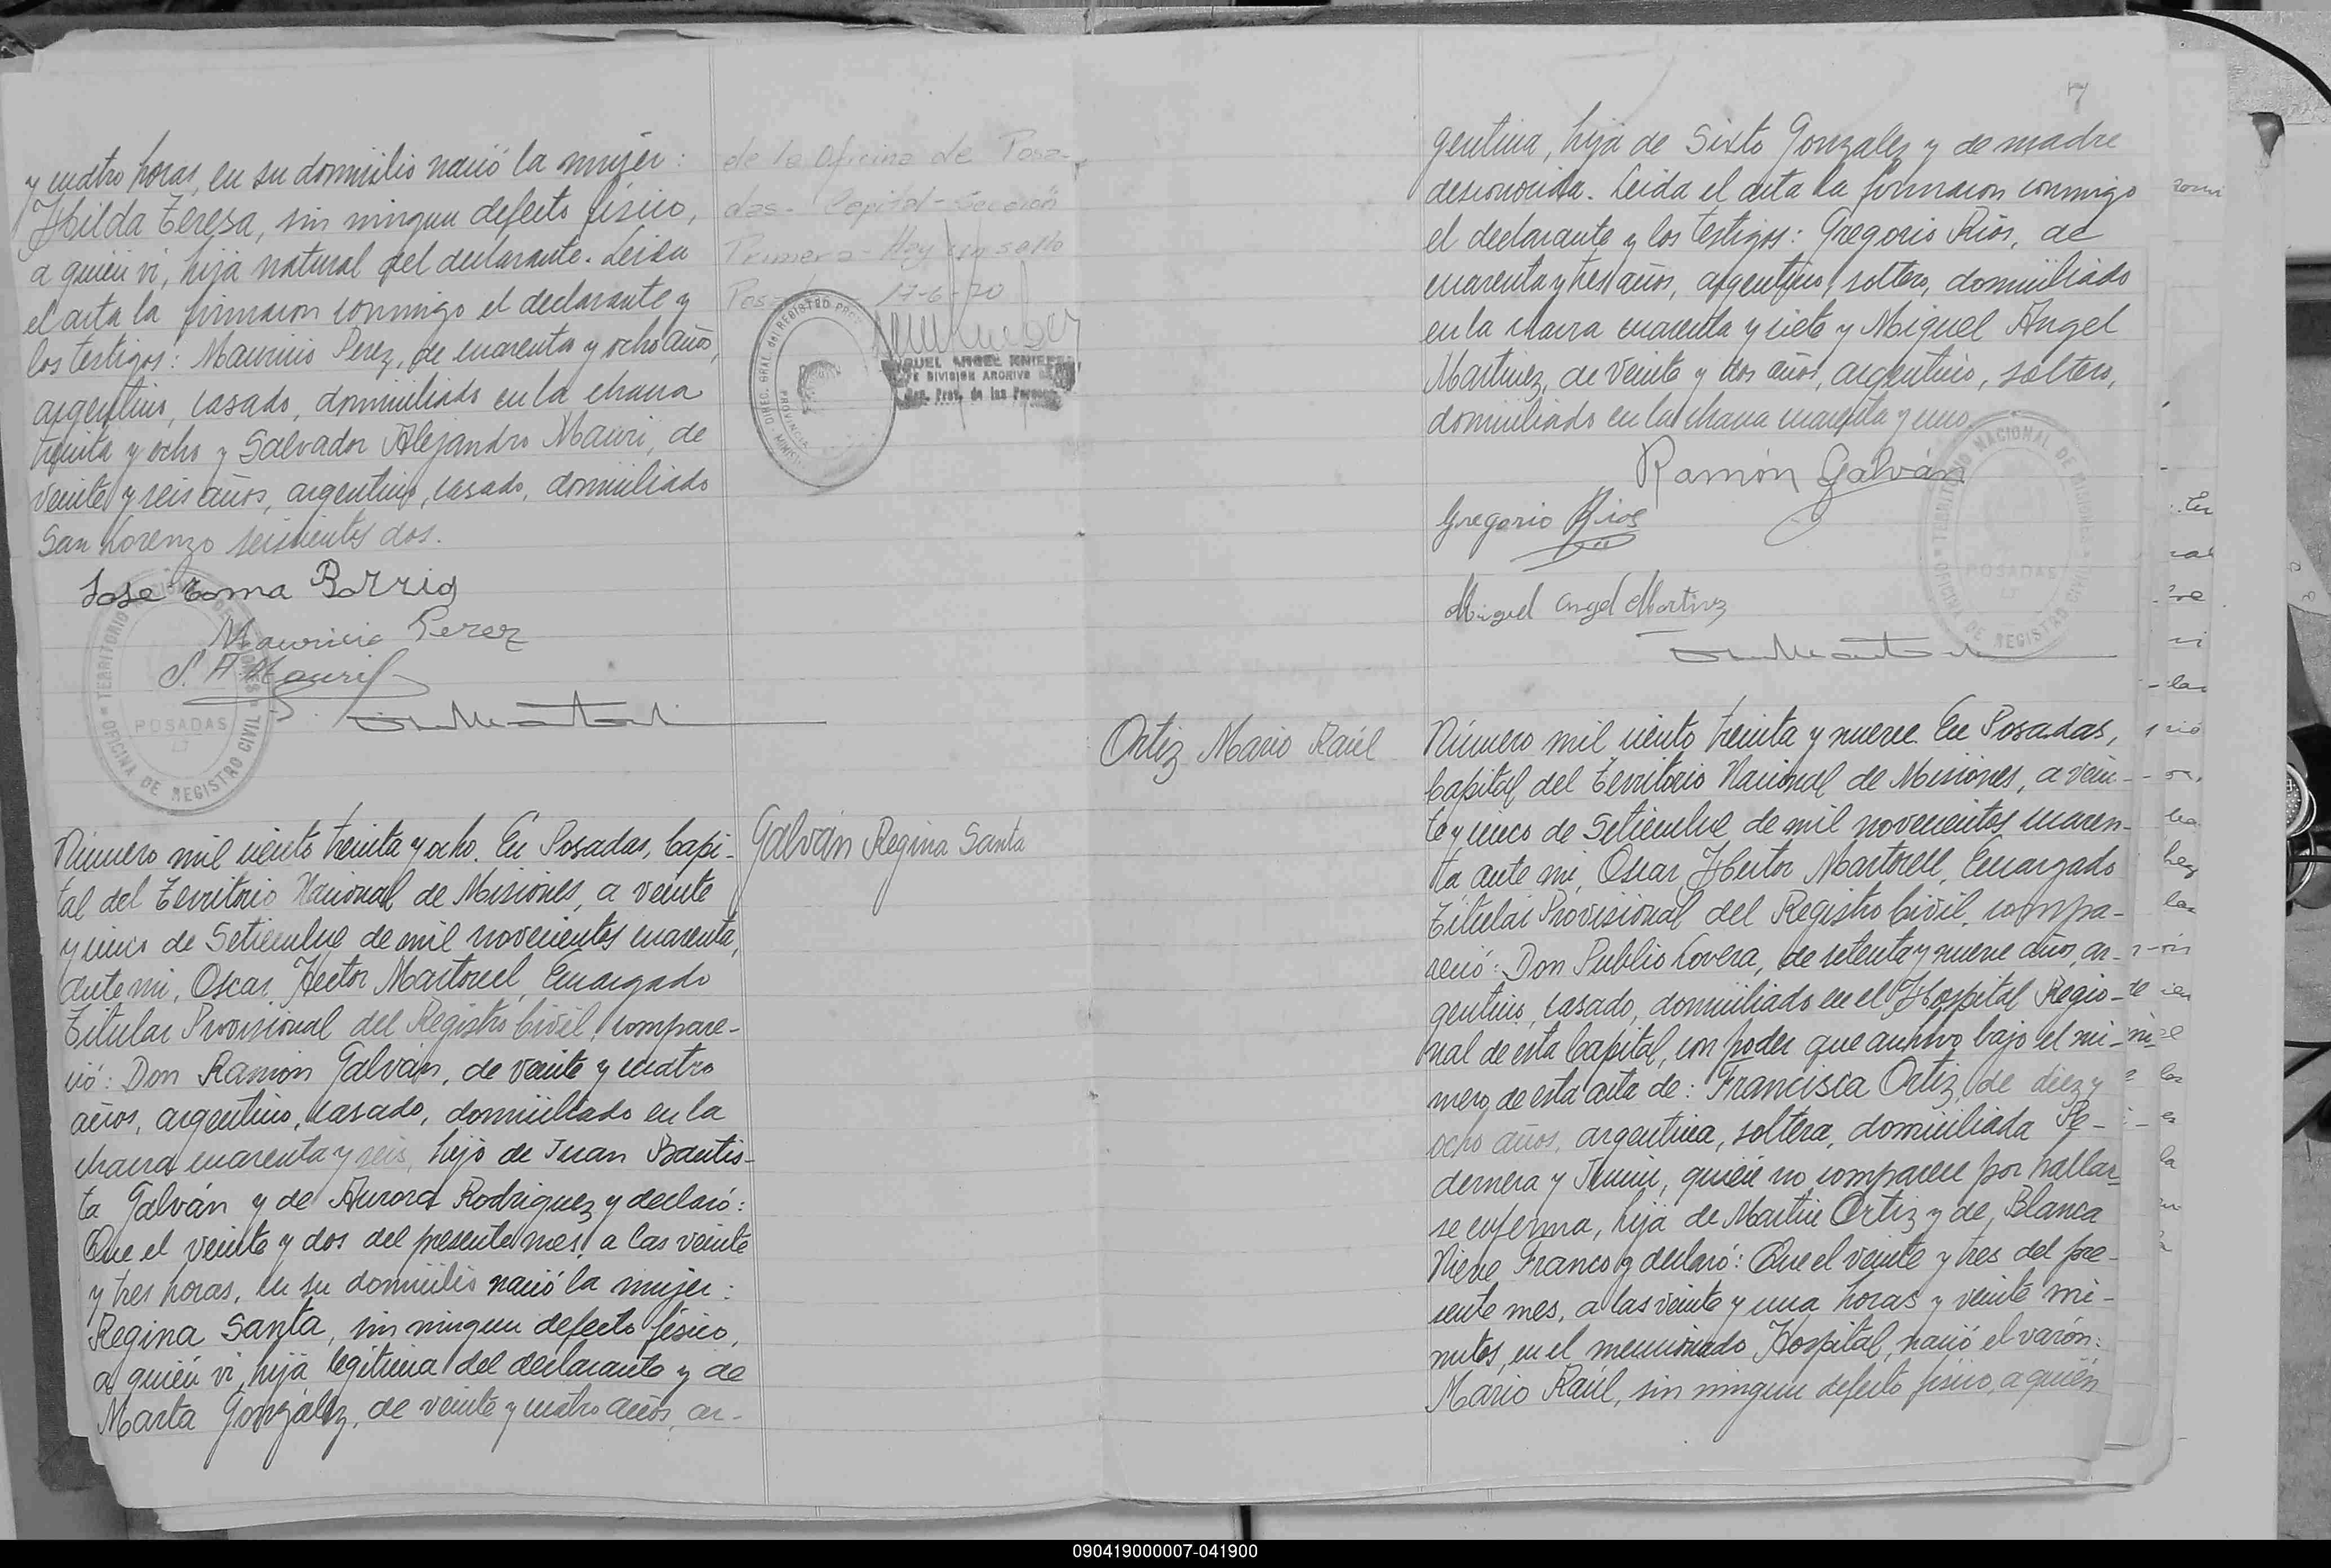 y cuatro horas, en su domicilio nació la mujer:
Hilda Teresa, sin ningun defecto físico,
a quién vi, hija natural del declarante. Leida
el acta la firmaron conmigo el declarante y
los testigos: Mauricio Perez, de cuarenta y ocho años,
argentino, casado, domiciliado en la chacra
treinta y ocho y Salvador Alejandro Mauri, de
veinte y seis años, argentino, casado, domiciliado
San Lorenzo seiscientos dos.
Mauricio Perez
S. A. Mauri
TERRITORIO NACIONAL DE MISIONES
POSADAS
OFICINA DE REGISTRO CIVIL
Número mil ciento treinta y ocho. En Posadas, Capi-
tal del Territorio Nacional de Misiones, a veinte
y cinco de Setiembre de mil novecientos cuarenta,
ante mi, Oscar Hector Martorell, Encargado
Titular Provisional del Registro Civil, compare-
ció: Don Ramón Galván, de veinte y cuatro
años, argentino, casado, domiciliado en la
chacra cuarenta y seis, hijo de Juan Bautis-
ta Galván y de Aurora Rodriguez y declaró:
Que el veinte y dos del presente mes, a las veinte
y tres horas, en su domicilio nació la mujer:
Regina Santa, sin ningun defecto físico,
a quién vi, hija legitima del declarante y de
Marta Gonzalez, de veinte y cuatro años, ar-
de la Oficina de Posa-
das - Capital - Sección
Primera - Hay un sello
17-6-70
DIREC. GRAL. del REGISTRO PROV.
MIGUEL ANGEL
DIVISION ARCHIVO
Prov. de las
Galván Regina Santa
7
gentina, hija de Sixto Gonzalez y de madre
desconocida. Leida el acta la firmaron conmigo
el declarante y los testigos: Gregorio Rios, de
cuarenta y tres años, argentino, soltero, domiciliado
en la chacra cuarenta y siete y Miguel Angel
Martinez, de veinte y dos años, argentino, soltero,
domiciliado en la chacra cuarenta y uno.
Ramón Galván
Gregorio Rios
Miguel Angel Martinez
TERRITORIO NACIONAL DE MISIONES
POSADAS
OFICINA DE REGISTRO CIVIL
Ortiz Mario Raúl
Número mil ciento treinta y nueve. En Posadas,
Capital del Territorio Nacional de Misiones, a vein-
te y cinco de Setiembre de mil novecientos cuaren-
ta ante mi, Oscar Hector Martorell, Encargado
Titular Provisional del Registro Civil, compa-
reció: Don Publio Lovera, de setenta y nueve años, ar-
gentino, casado, domiciliado en el Hospital Regio-
nal de esta Capital, con poder que archivo bajo el nú-
mero de esta acta de: Francisca Ortiz, de diez y
ocho años, argentina, soltera, domiciliada Pe-
dernera y Junin, quién no comparece por hallar-
se enferma, hija de Martin Ortiz y de Blanca
Nieve Franco y declaró: Que el veinte y tres del pre-
sente mes, a las veinte y una horas y veinte mi-
nutos, en el mencionado Hospital, nació el varón:
Mario Raul, sin ningun defecto físico, a quién
090419000007-041900